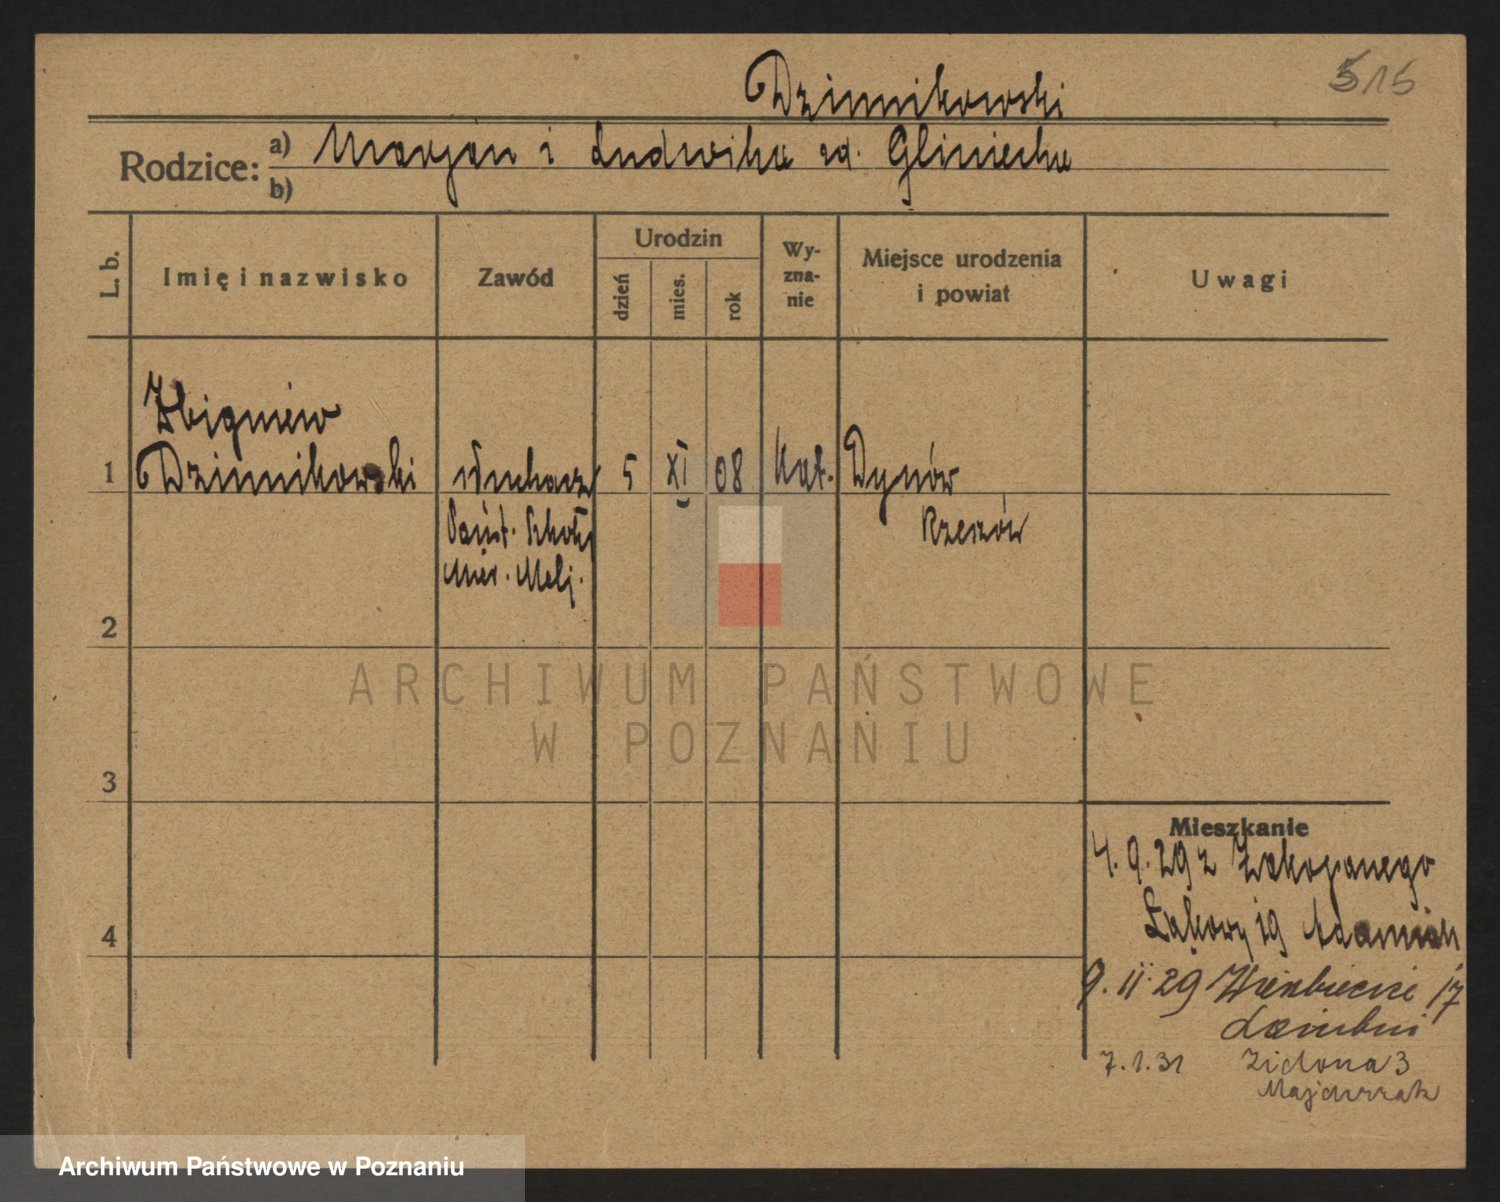 515
Dzinnikowski
Rodzice: a) Marjan i Ludwika zd. Gliniecka
b)
L. b.
Imię i nazwisko
Zawód
Urodzin
dzień
mies.
rok
Wy-
zna-
nie
Miejsce urodzenia
i powiat
Uwagi
Zbigniew
1 Dzinnikowski słuchacz 5 XI 08 kat. Dynów
Państ. Szkoły Rzeszów
Mier. Melj.
2
3
4
Mieszkanie
4.9.29 z Zakopanego
Łąkowy 19 Adamiak
9.11.29 Wierzbięcice 17
7.1.31 Zielona 3
Majchrzak
ARCHIWUM PAŃSTWOWE
W POZNANIU
Archiwum Państwowe w Poznaniu